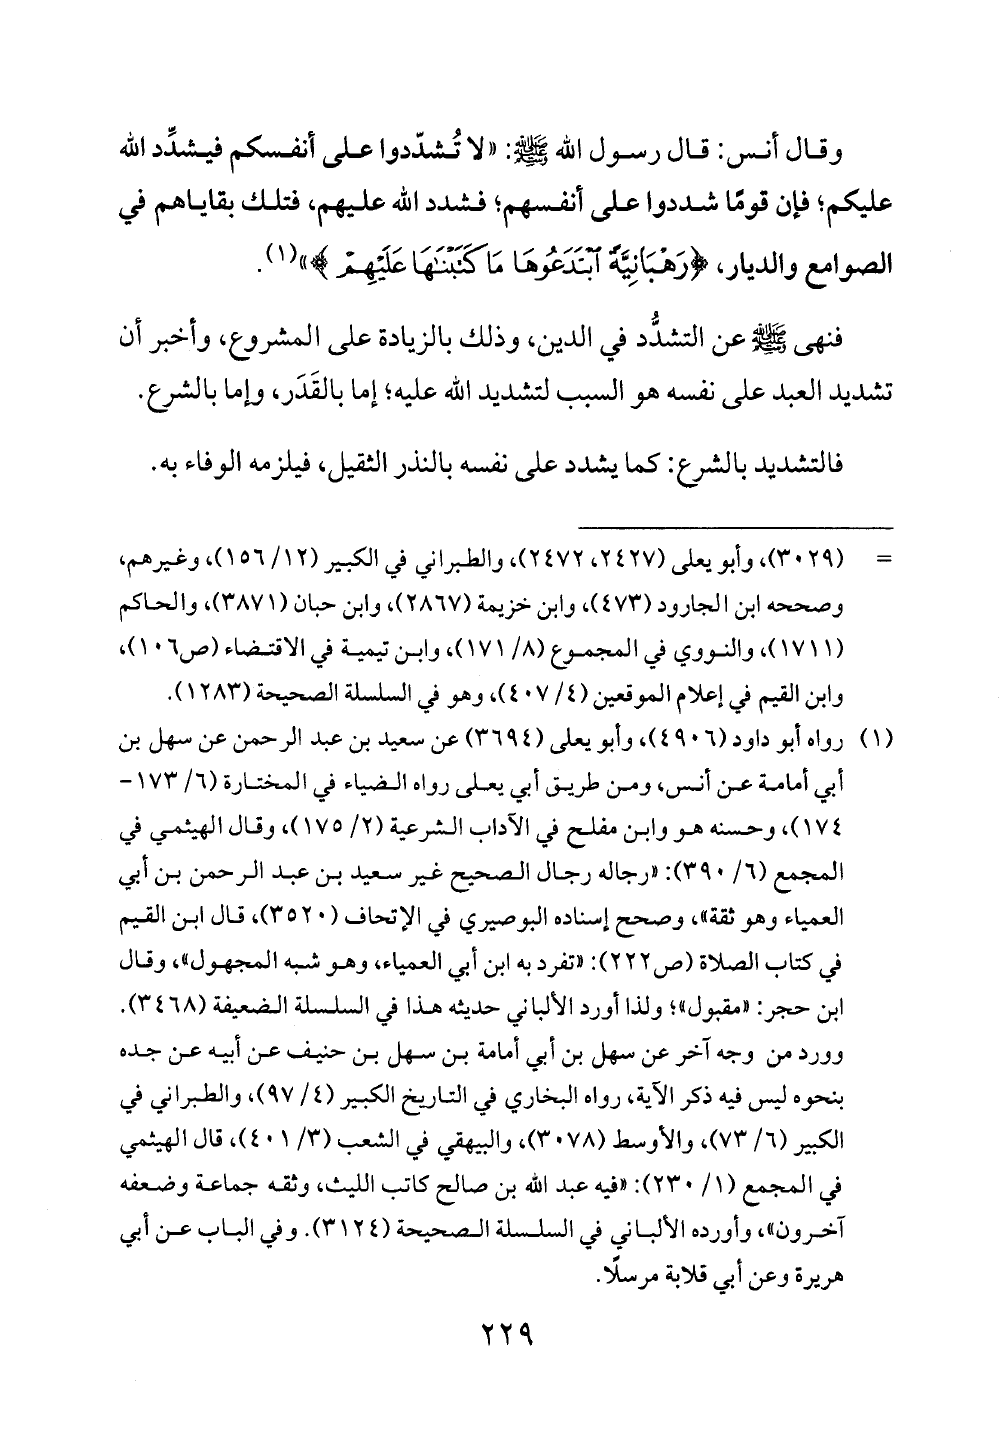 وقال أنس: قال رسول الله ﷺ: «لا تُشدّدوا على أنفسكم فيشدِّد الله
عليكم؛ فإن قومًا شددوا على أنفسهم؛ فشدد الله عليهم، فتلك بقاياهم في
الصوامع والديار، ﴿رَهْبَانِيَّةً ٱبْتَدَعُوهَا مَا كَتَبْنَٰهَا عَلَيْهِمْ﴾»(١).
فنهى ﷺ عن التشدُّد في الدين، وذلك بالزيادة على المشروع، وأخبر أن
تشديد العبد على نفسه هو السبب لتشديد الله عليه؛ إما بالقَدَر، وإما بالشرع.
فالتشديد بالشرع: كما يشدد على نفسه بالنذر الثقيل، فيلزمه الوفاء به.
= (٣٠٢٩)، وأبو يعلى (٢٤٢٧، ٢٤٧٢)، والطبراني في الكبير (١٢/ ١٥٦)، وغيرهم،
وصححه ابن الجارود (٤٧٣)، وابن خزيمة (٢٨٦٧)، وابن حبان (٣٨٧١)، والحاكم
(١٧١١)، والنووي في المجموع (٨/ ١٧١)، وابن تيمية في الاقتضاء (ص١٠٦)،
وابن القيم في إعلام الموقعين (٤/ ٤٠٧)، وهو في السلسلة الصحيحة (١٢٨٣).
(١) رواه أبو داود (٤٩٠٦)، وأبو يعلى (٣٦٩٤) عن سعيد بن عبد الرحمن عن سهل بن
أبي أمامة عن أنس، ومن طريق أبي يعلى رواه الضياء في المختارة (٦/ ١٧٣-
١٧٤)، وحسنه هو وابن مفلح في الآداب الشرعية (٢/ ١٧٥)، وقال الهيثمي في
المجمع (٦/ ٣٩٠): «رجاله رجال الصحيح غير سعيد بن عبد الرحمن بن أبي
العمياء وهو ثقة»، وصحح إسناده البوصيري في الإتحاف (٣٥٢٠)، قال ابن القيم
في كتاب الصلاة (ص٢٢٢): «تفرد به ابن أبي العمياء، وهو شبه المجهول»، وقال
ابن حجر: «مقبول»؛ ولذا أورد الألباني حديثه هذا في السلسلة الضعيفة (٣٤٦٨).
وورد من وجه آخر عن سهل بن أبي أمامة بن سهل بن حنيف عن أبيه عن جده
بنحوه ليس فيه ذكر الآية، رواه البخاري في التاريخ الكبير (٤/ ٩٧)، والطبراني في
الكبير (٦/ ٧٣)، والأوسط (٣٠٧٨)، والبيهقي في الشعب (٣/ ٤٠١)، قال الهيثمي
في المجمع (١/ ٢٣٠): «فيه عبد الله بن صالح كاتب الليث، وثقه جماعة وضعفه
آخرون»، وأورده الألباني في السلسلة الصحيحة (٣١٢٤). وفي الباب عن أبي
هريرة وعن أبي قلابة مرسلًا.
٢٢٩